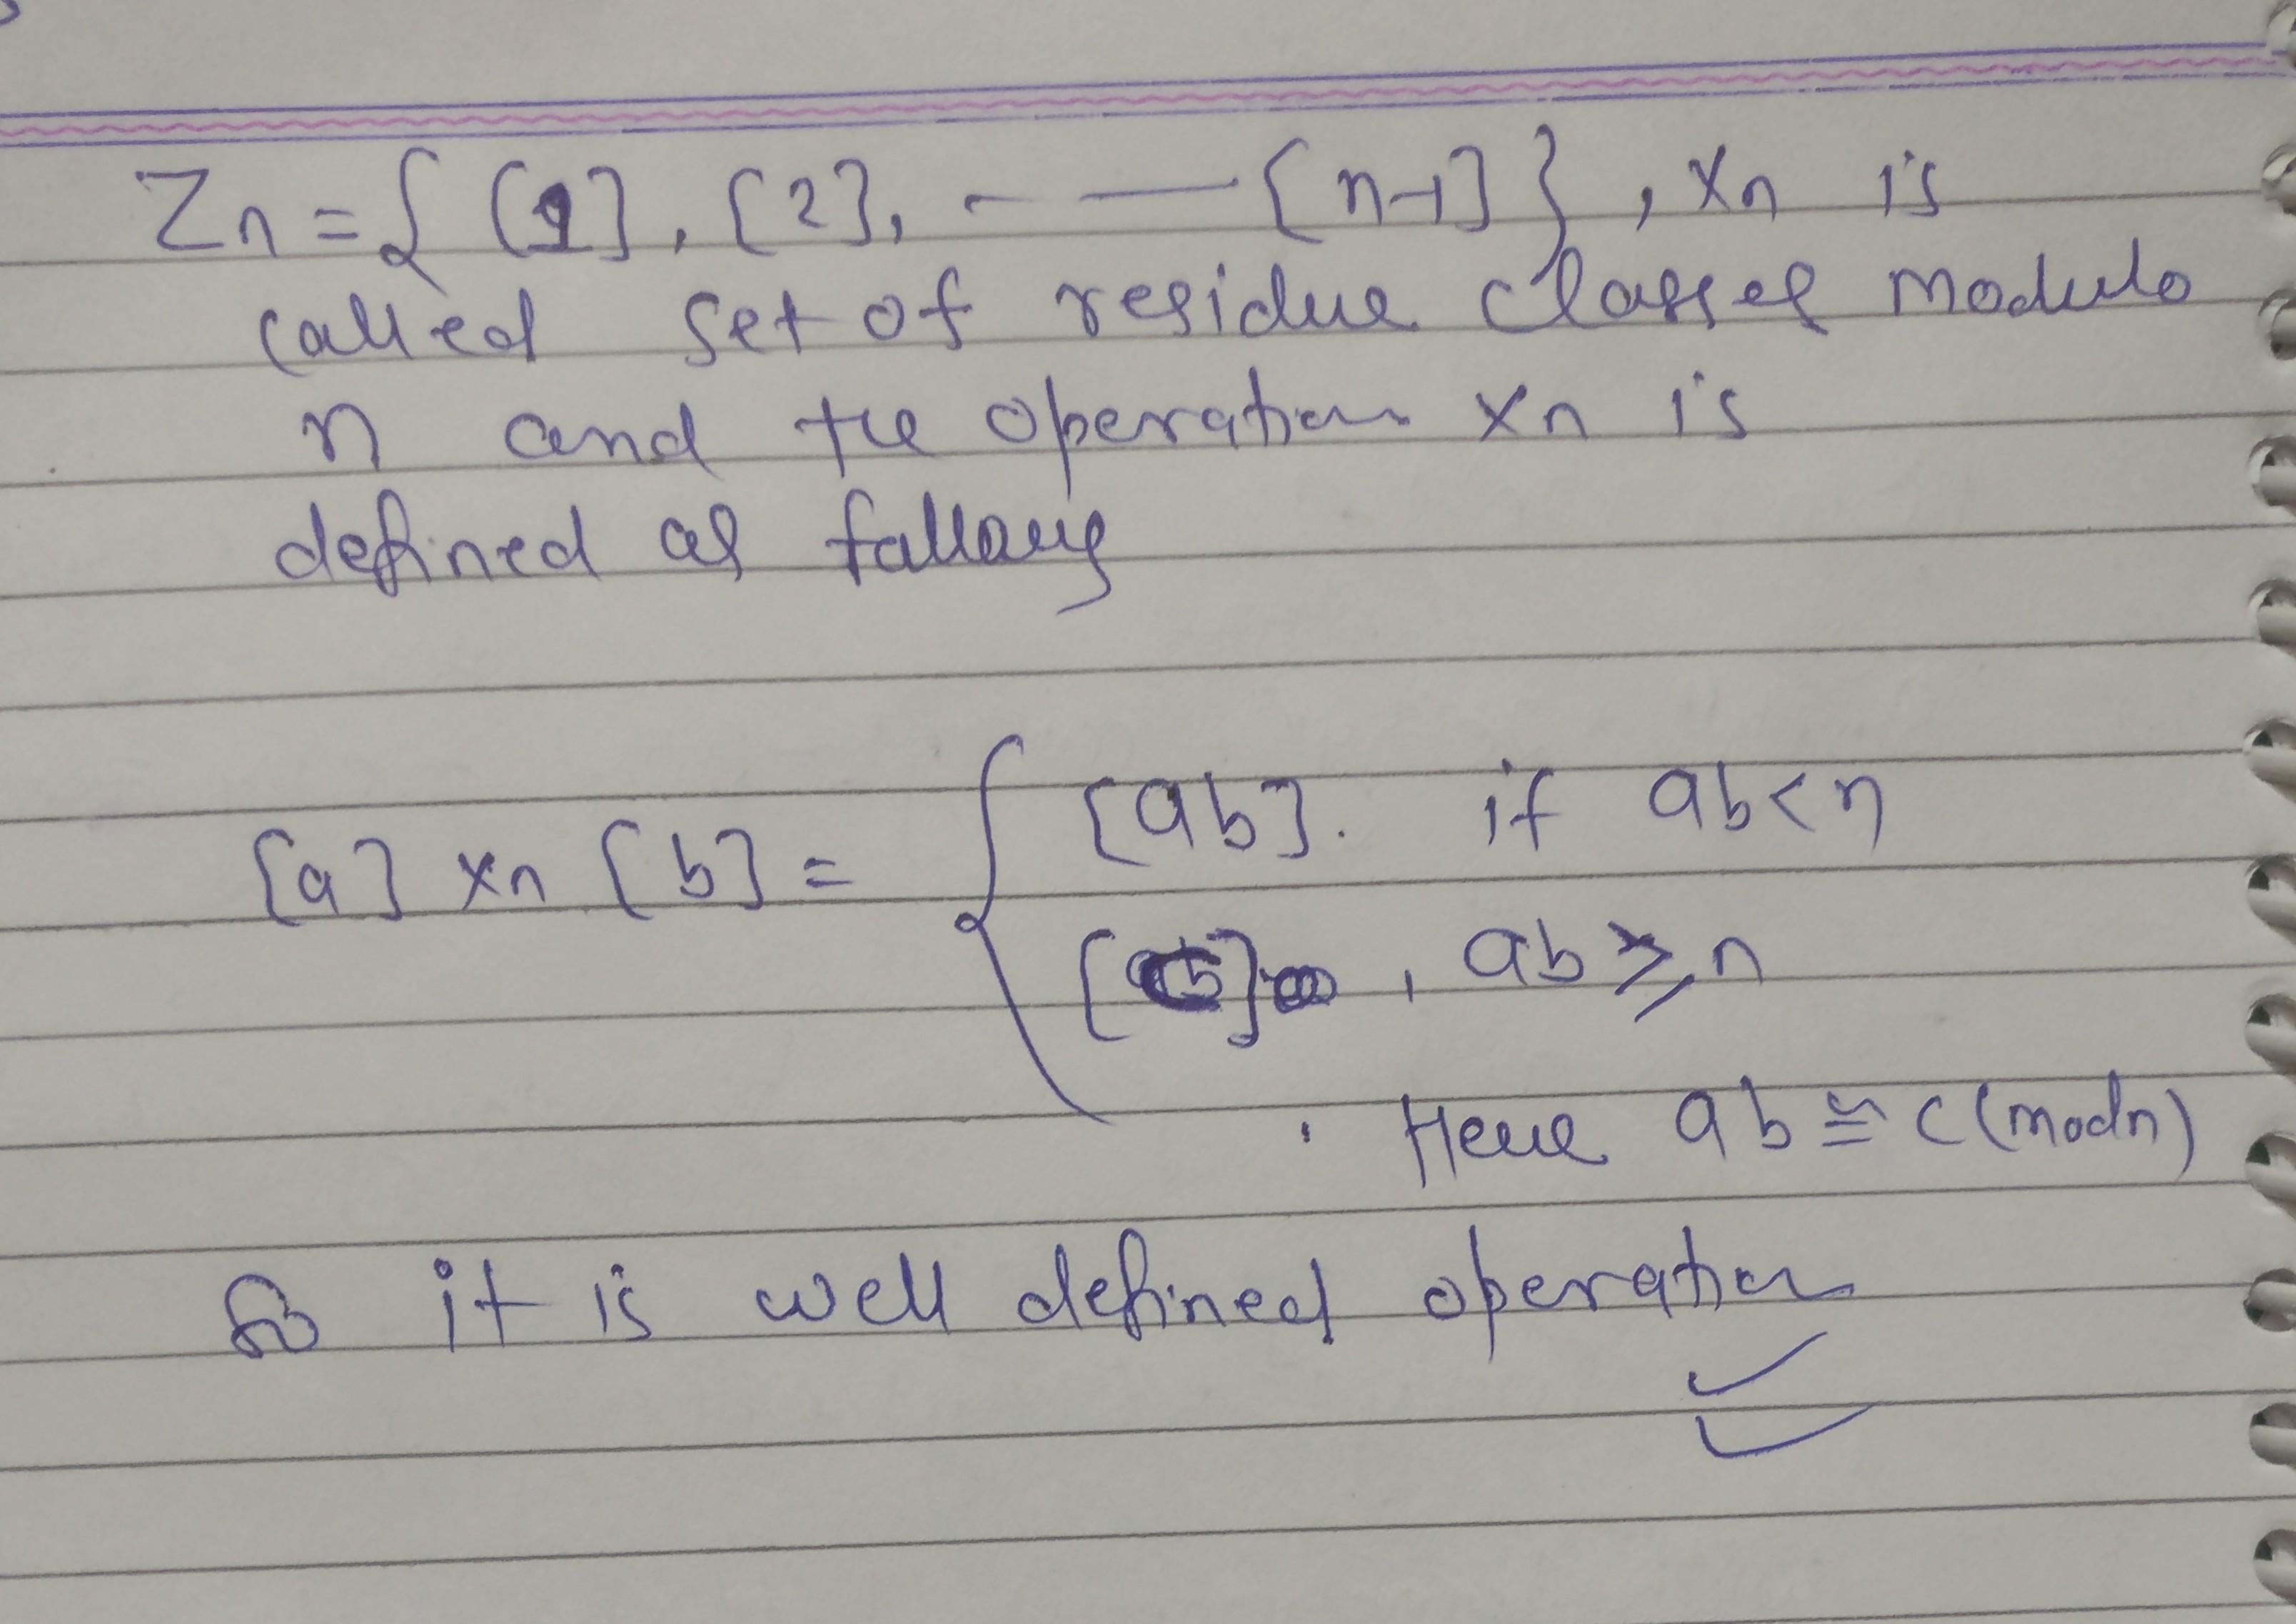 Zn = { [1], [2], - — [n-1] } , xn is
called set of residue classes modulo
n and the operation xn is
defined as follows
[a] xn [b] = { [ab]. if ab < n
[c] , ab ≥ n
. Here ab ≅ c (modn)
So it is well defined operation